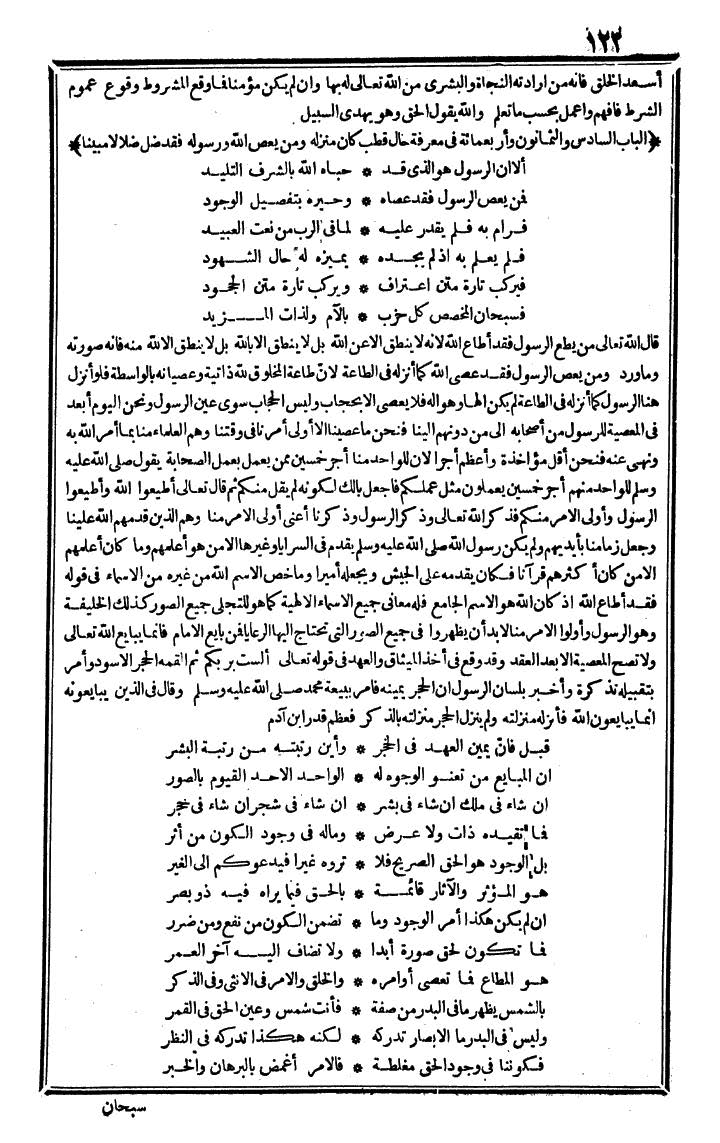 ١٢٢
أسعد الخلق فانه من ارادته النجاة والبشرى من الله تعالى له بها وان لم يكن مؤمنا فما وقع المشروط وقوع عموم
الشرط فافهم واعمل بحسب ما تعلم والله يقول الحق وهو يهدى السبيل
﴿الباب السادس والثمانون وأربعمائة فى معرفة حال قطب كان منزله ومن يعص الله ورسوله فقد ضل ضلالا مبينا﴾
ألا ان الرسول هو الذى قد * حباه الله بالشرف التليد
فمن يعص الرسول فقد عصاه * وحيره بتفصيل الوجود
فرام به فلم يقدر عليه * لما فى الرب من نعت العبيد
فلم يعلم به اذ لم يجده * يميزه له حال الشهود
فيركب تارة متن اعتراف * ويركب تارة متن الجحود
فسبحان المخصص كل حزب * بالآم ولذات المزيد
قال الله تعالى من يطع الرسول فقد أطاع الله لانه لا ينطق الا عن الله بل لا ينطق الا بالله بل لا ينطق الا الله منه فانه صورته
وما ورد ومن يعص الرسول فقد عصى الله كما أنزله فى الطاعة لانّ طاعة المخلوق لله ذاتية وعصيانه بالواسطة فلو أنزل
هنا الرسول كما أنزله فى الطاعة لم يكن الها وهو اله فلا يعصى الا بحجاب وليس الحجاب سوى عين الرسول ونحن اليوم أبعد
فى المعصية للرسول من أصحابه الى من دونهم الينا فنحن ما عصينا الا أولى أمرنا فى وقتنا وهم العلماء منا بما أمر الله به
ونهى عنه فنحن أقل مؤاخذة وأعظم أجرا لان للواحد منا أجر خمسين ممن يعمل بعمل الصحابة يقول صلى الله عليه
وسلم للواحد منهم أجر خمسين يعملون مثل عملكم فاجعل بالك لكونه لم يقل منكم ثم قال تعالى أطيعوا الله وأطيعوا
الرسول وأولى الامر منكم فذكر الله تعالى وذكر الرسول وذكرنا أعنى أولى الامر منا وهم الذين قدمهم الله علينا
وجعل زمامنا بأيديهم ولم يكن رسول الله صلى الله عليه وسلم يقدم فى السرايا وغيرها الا من هو أعلمهم وما كان أعلمهم
الا من كان أكثرهم قرآنا فكان يقدمه على الجيش ويجعله أميرا وما خص الاسم الله من غيره من الاسماء فى قوله
فقد أطاع الله اذ كان الله هو الاسم الجامع فله معانى جميع الاسماء الالهية كما هو للتجلى جميع الصور كذلك الخليفة
وهو الرسول وأولوا الامر منا لابد أن يظهروا فى جميع الصور التى تحتاج اليها الرعايا فمن بايع الامام فانما يبايع الله تعالى
ولا تصح المعصية الا بعد العقد وقد وقع فى أخذ الميثاق والعهد فى قوله تعالى ألست بربكم ثم القمه الحجر الاسود وأمر
بتقبيله تذكرة وأخبر بلسان الرسول ان الحجر يمينه فامر ببيعة محمد صلى الله عليه وسلم وقال فى الذين يبايعونه
انما يبايعون الله فأنزله منزلته ولم ينزل الحجر منزلته بالذكر فعظم قدر ابن آدم
قبل فانّ يمين العهد فى الحجر * وأين رتبته من رتبة البشر
ان المبايع من تعنو الوجوه له * الواحد الاحد القيوم بالصور
ان شاء فى ملك ان شاء فى بشر * ان شاء فى شجر ان شاء فى حجر
فما تقيده ذات ولا عرض * وما له فى وجود الكون من أثر
بل الوجود هو الحق الصريح فلا * تروه غيرا فيدعوكم الى الغير
هو المؤثر والآثار قائمة * بالحق فيما يراه فيه ذو بصر
ان لم يكن هكذا أمر الوجود وما * تضمن الكون من نفع ومن ضرر
فما تكون لحق صورة أبدا * ولا تضاف اليه آخر العمر
هو المطاع فما تعصى أوامره * والخلق والامر فى الانثى وفى الذكر
بالشمس يظهر ما فى البدر من صفة * فأنت شمس وعين الحق فى القمر
وليس فى البدر ما الابصار تدركه * لكنه هكذا تدركه فى النظر
فكوننا فى وجود الحق مغلطة * فالامر أغمض بالبرهان والخبر
سبحان